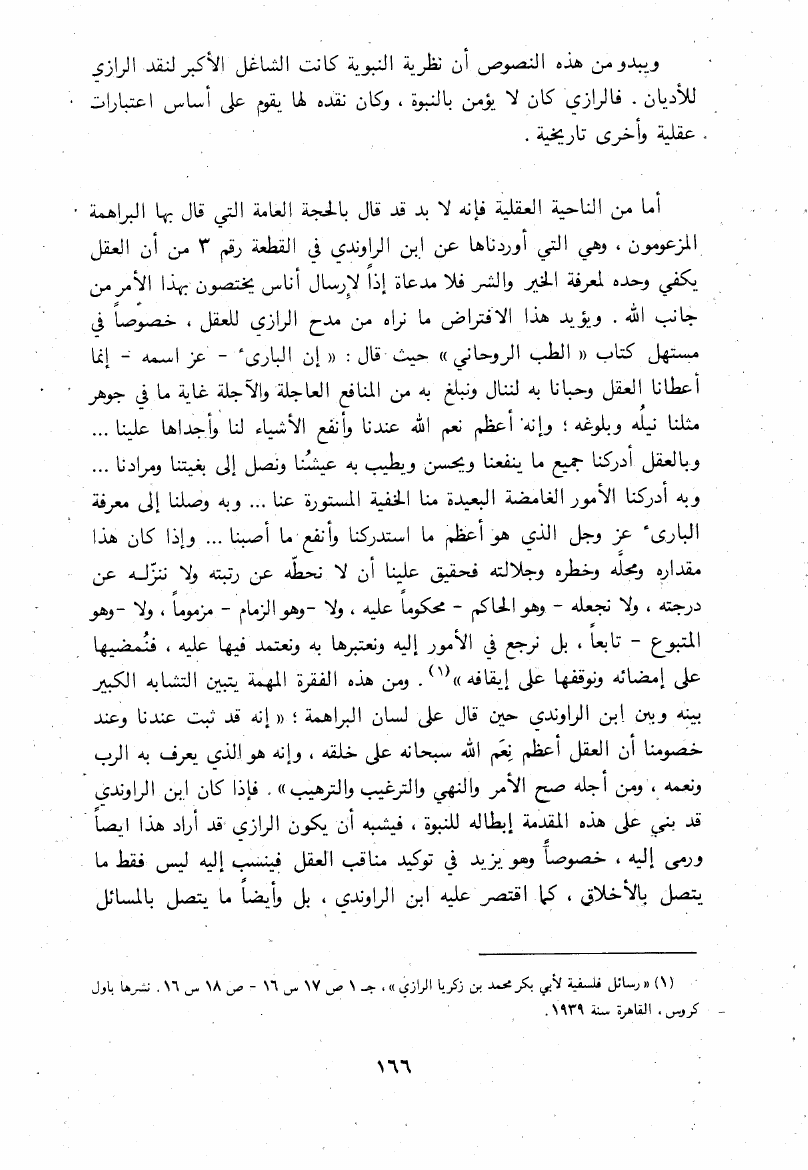 ويبدو من هذه النصوص أن نظرية النبوية كانت الشاغل الأكبر لنقد الرازي
للأديان . فالرازي كان لا يؤمن بالنبوة ، وكان نقده لها يقوم على أساس اعتبارات
عقلية وأخرى تاريخية .
أما من الناحية العقلية فإنه لا بد قد قال بالحجة العامة التي قال بها البراهمة
المزعومون ، وهي التي أوردناها عن ابن الراوندي في القطعة رقم ٣ من أن العقل
يكفي وحده لمعرفة الخير والشر فلا مدعاة إذاً لإرسال أناس يختصون بهذا الأمر من
جانب الله . ويؤيد هذا الافتراض ما نراه من مدح الرازي للعقل ، خصوصاً في
مستهل كتاب « الطب الروحاني » حيث قال : « إن البارىء - عز اسمه - إنما
أعطانا العقل وحبانا به لننال ونبلغ به من المنافع العاجلة والآجلة غاية ما في جوهر
مثلنا نيلُه وبلوغه ؛ وإنه أعظم نعم الله عندنا وأنفع الأشياء لنا وأجداها علينا ...
وبالعقل أدركنا جميع ما ينفعنا ويحسن ويطيب به عيشُنا ونصل إلى بغيتنا ومرادنا ...
وبه أدركنا الأمور الغامضة البعيدة منا الخفية المستورة عنا ... وبه وصلنا إلى معرفة
البارىء عز وجل الذي هو أعظم ما استدركنا وأنفع ما أصبنا ... وإذا كان هذا
مقداره ومحلَّه وخطره وجلالته فحقيق علينا أن لا نحطّه عن رتبته ولا ننزّله عن
درجته ، ولا نجعله - وهو الحاكم - محكوماً عليه ، ولا -وهو الزمام - مزموماً ، ولا -وهو
المتبوع - تابعاً ، بل نرجع في الأمور إليه ونعتبرها به ونعتمد فيها عليه ، فنُمضيها
على إمضائه ونوقفها على إيقافه »(١) . ومن هذه الفقرة المهمة يتبين التشابه الكبير
بينه وبين ابن الراوندي حين قال على لسان البراهمة ؛ « إنه قد ثبت عندنا وعند
خصومنا أن العقل أعظم نِعَم الله سبحانه على خلقه ، وإنه هو الذي يعرف به الرب
ونعمه ، ومن أجله صح الأمر والنهي والترغيب والترهيب » . فإذا كان ابن الراوندي
قد بني على هذه المقدمة إبطاله للنبوة ، فيشبه أن يكون الرازي قد أراد هذا ايصاً
ورمى إليه ، خصوصاً وهو يزيد في توكيد مناقب العقل فينسب إليه ليس فقط ما
يتصل بالأخلاق ، كما اقتصر عليه ابن الراوندي ، بل وأيضاً ما يتصل بالمسائل
(١) « رسائل فلسفية لأبي بكر محمد بن زكريا الرازي » ، جـ ١ ص ١٧ س ١٦ - ص ١٨ س ١٦ . نشرها باول
كروس ، القاهرة سنة ١٩٣٩ .
١٦٦